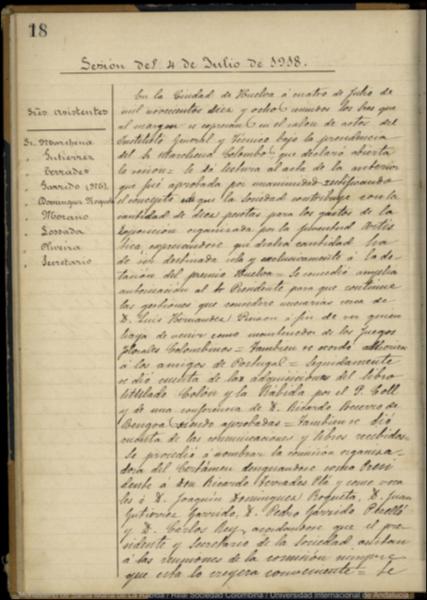 18
Sesión del 4 de Julio de 1918.
Sres. Asistentes
Sr. Marchena
" Gutierrez
" Terrades
" Garrido (D.P.)
" Dominguez Roqueta
" Morano
" Losada
" Oliveira
" Secretario
En la Ciudad de Huelva á cuatro de Julio de
mil novecientos diez y ocho reunidos los Sres que
al margen se expresan en el salon de actos del
Instituto General y Técnico bajo la presidencia
del Sr Marchena Colombo que declaró abierta
la sesion = Se dá lectura al acta de la anterior
que fué aprobada por unanimidad rectificando
el concepto de que la Sociedad contribuye con la
cantidad de diez pesetas para los gastos de la
Exposicion organizada por la Juventud Artís
tica expresandose que dicha cantidad ha
de ser destinada sola y exclusivamente á la do-
tación del premio Huelva = Se concedió amplia
autorización al Sr Presidente para que continue
las gestiones que considere necesarias cerca de
D. Luis Hernandez Pinzon á fin de ver quien
haya de venir como mantenedor de los Juegos
Florales Colombinos = Tambien se acordó
á los amigos de Portugal = Seguidamente
se dió cuenta de las adquisiciones del libro
titulado Colon y la Rábida por el P. Coll
y de una conferencia de D. Ricardo Becerro de
Bengoa siendo aprobadas = Tambien se dió
cuenta de las comunicaciones y libros recibidos =
Se procedió á nombrar la comisión organiza-
dora del Certámen designandose como Presi
dente á Don Ricardo Terrades Plá y como voca
les á D. Joaquin Dominguez Roqueta, D. Juan
Gutierrez Garrido, D. Pedro Garrido Perelló
y D. Carlos Rey, acordandose que el pre-
sidente y Secretario de la Sociedad asistan
á las reuniones de la comisión siempre
que esta lo creyera conveniente = Se
Real Sociedad Colombina | Universidad Internacional de Andalucía